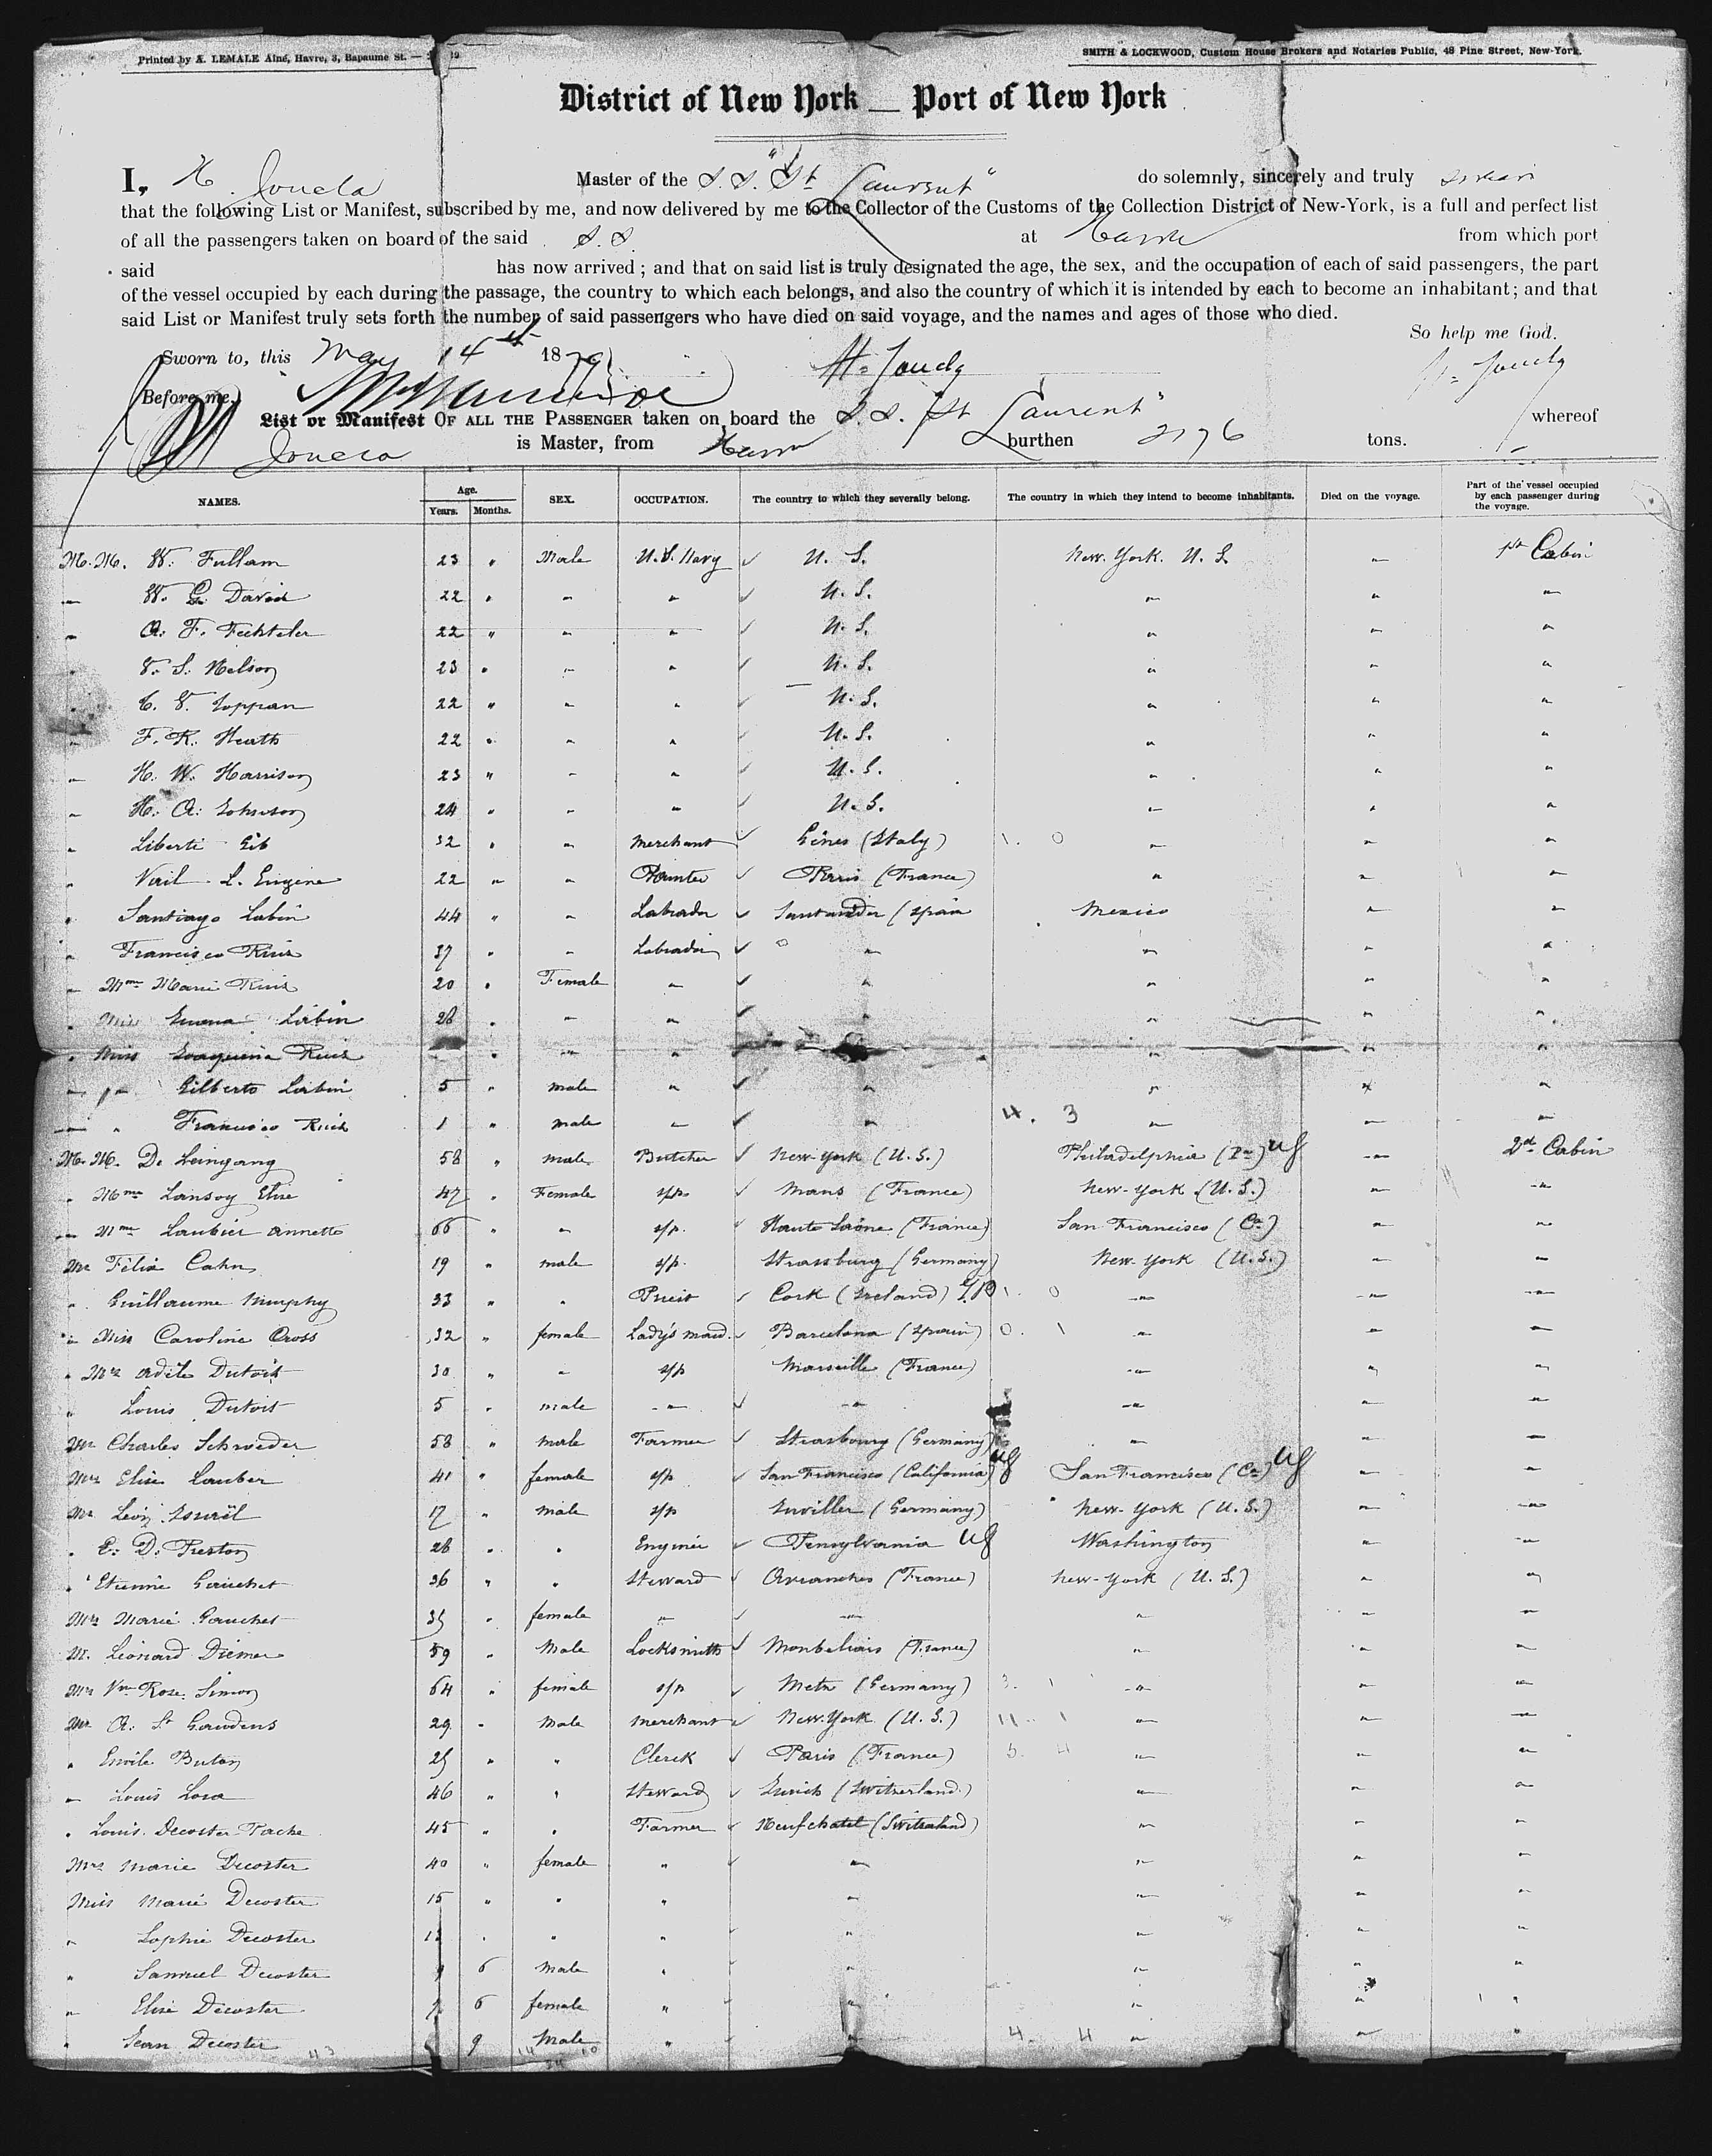 Printed by A. LEMALE Aîné, Havre, 3, Bapaume St. — 19
SMITH & LOCKWOOD, Custom House Brokers and Notaries Public, 48 Pine Street, New-York.
District of New York — Port of New York
I, H. Joucla Master of the S.S. "St Laurent" do solemnly, sincerely and truly swear
that the following List or Manifest, subscribed by me, and now delivered by me to the Collector of the Customs of the Collection District of New-York, is a full and perfect list
of all the passengers taken on board of the said S.S. at Havre from which port
said has now arrived ; and that on said list is truly designated the age, the sex, and the occupation of each of said passengers, the part
of the vessel occupied by each during the passage, the country to which each belongs, and also the country of which it is intended by each to become an inhabitant ; and that
said List or Manifest truly sets forth the number of said passengers who have died on said voyage, and the names and ages of those who died.
So help me God.
Sworn to, this May 14th 1879 H. Joucla H. Joucla
Before me,
List or Manifest OF ALL THE PASSENGER taken on board the S.S. "St Laurent" whereof
Joucla is Master, from Havre burthen tons.
NAMES. Age. Years. Months. SEX. OCCUPATION. The country to which they severally belong. The country in which they intend to become inhabitants. Died on the voyage. Part of the vessel occupied by each passenger during the voyage.
M.M. W. Fullam 23 " Male U.S. Navy U. S. New-York. U. S. " 1st Cabin
" W. G. David 22 " " " U. S. " " "
" A. F. Fechteler 22 " " " U. S. " " "
" V. S. Nelson 23 " " " U. S. " " "
" C. V. Toppan 22 " " " U. S. " " "
" F. R. Heath 22 " " " U. S. " " "
" H. W. Harrison 23 " " " U. S. " " "
" H. A. Johnson 24 " " " U. S. " " "
" Liberti 32 " " Merchant Gênes (Italy) 1. 0 " " "
" Vail L. Eugène 22 " " Painter Paris (France) " " "
" Santiago Labin 44 " " Labrador Santander (Spain Mexico " "
" Francisco Ruiz 37 " " Labrador " " " "
" Mme Marie Ruiz 20 " Female " " " " "
" Miss Emma Labin 28 " " " " " " "
" Miss Joaquina Ruiz " " " " " "
" Gilberto Labin 5 " male " " " " "
" " Francisco Ruiz 1 " male " " 4. 3 " " "
M.M. D. Leingang 58 " male Butcher New-York (U.S.) Philadelphia (Pa) US " 2d Cabin
" Mme Lansoy Elise 47 " Female s/p. Mans (France) New-York (U.S.) " "
" Mme Laubier Annette 66 " " s/p. Haute Saône (France) San Francisco (Ca) " "
Mr Félix Cahn 19 " male s/p. Strassburg (Germany) New York (U.S.) " "
" Guillaume Murphy 33 " " Priest Cork (Ireland) 1. 0 " " "
" Miss Caroline Oross 32 " female Lady's maid Barcelona (Spain) 0. 1 " " "
" Mrs Adèle Dutoit 30 " " s/p Marseille (France) " " "
" Louis Dutoit 5 " male " " " " "
Mr Charles Schroeder 58 " male Farmer Strasbourg (Germany) " " "
Mrs Elise Lauber 41 " female s/p San Francisco (California) US San Francisco (Ca) US " "
Mr Léon Israël 17 " male s/p (Germany) New-York (U.S.) " "
" E. D. Preston 28 " " Enginier Pensylvania US Washington " "
" Etienne Gauchet 36 " " Steward Avranches (France) New-York (U.S.) " "
Mrs Marie Gauchet 35 " female " " " " "
M. Léonard Diemer 59 " Male Locksmith Monbeliars (France) " " "
Mrs Vve Rose Simon 64 " female s/p Metz (Germany) 3. 1 " " "
Mr A. St Gaudens 29 " Male Merchant New-York (U.S.) 11. 1 " " "
" Emile Buton 25 " " Clerck Paris (France) 5. 4 " " "
" Louis Lora 46 " " Steward Zurich (Switzerland) " " "
" Louis Decoster Tache 45 " " Farmer Neufchatel (Switzerland) " " "
Mrs Marie Decoster 40 " female " " " " "
Miss Marie Decoster 15 " " " " " " "
" Sophie Decoster " " " " " " "
" Samuel Decoster 6 Male " " " " "
" Elise Decoster 6 female " " " " "
" Jean Decoster 9 Male " " 4. 4 " " "
43